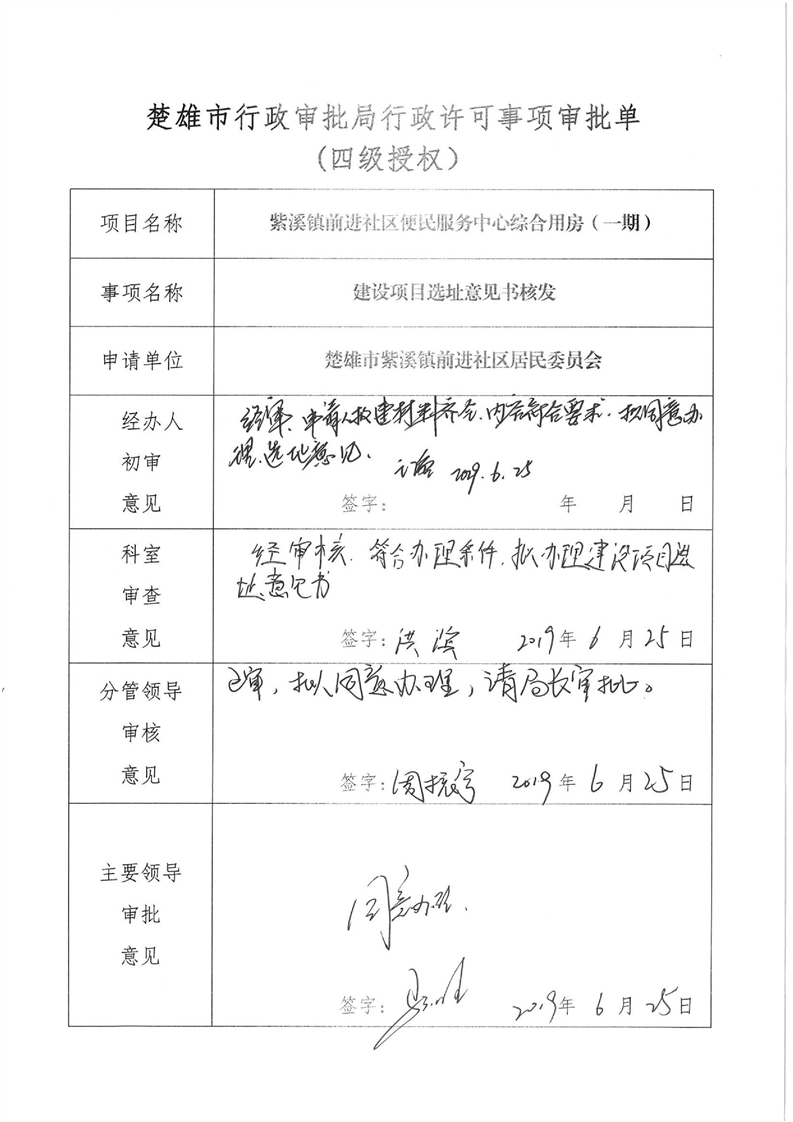 楚雄市行政审批局行政许可事项审批单
（四级授权）
项目名称
紫溪镇前进社区便民服务中心综合用房（一期）
事项名称
建设项目选址意见书核发
申请单位
楚雄市紫溪镇前进社区居民委员会
经办人
初审
意见
经审、申请人报建材料齐全、内容符合要求、拟同意办
理选址意见、
2019.6.25
签字： 年 月 日
科室
审查
意见
经审核、符合办理条件、拟办理建设项目选
址意见书
签字：洪滨 2019年6月25日
分管领导
审核
意见
已审，拟同意办理，请局长审批。
签字：周振 2019年6月25日
主要领导
审批
意见
同意办理.
签字： 2019年6月25日